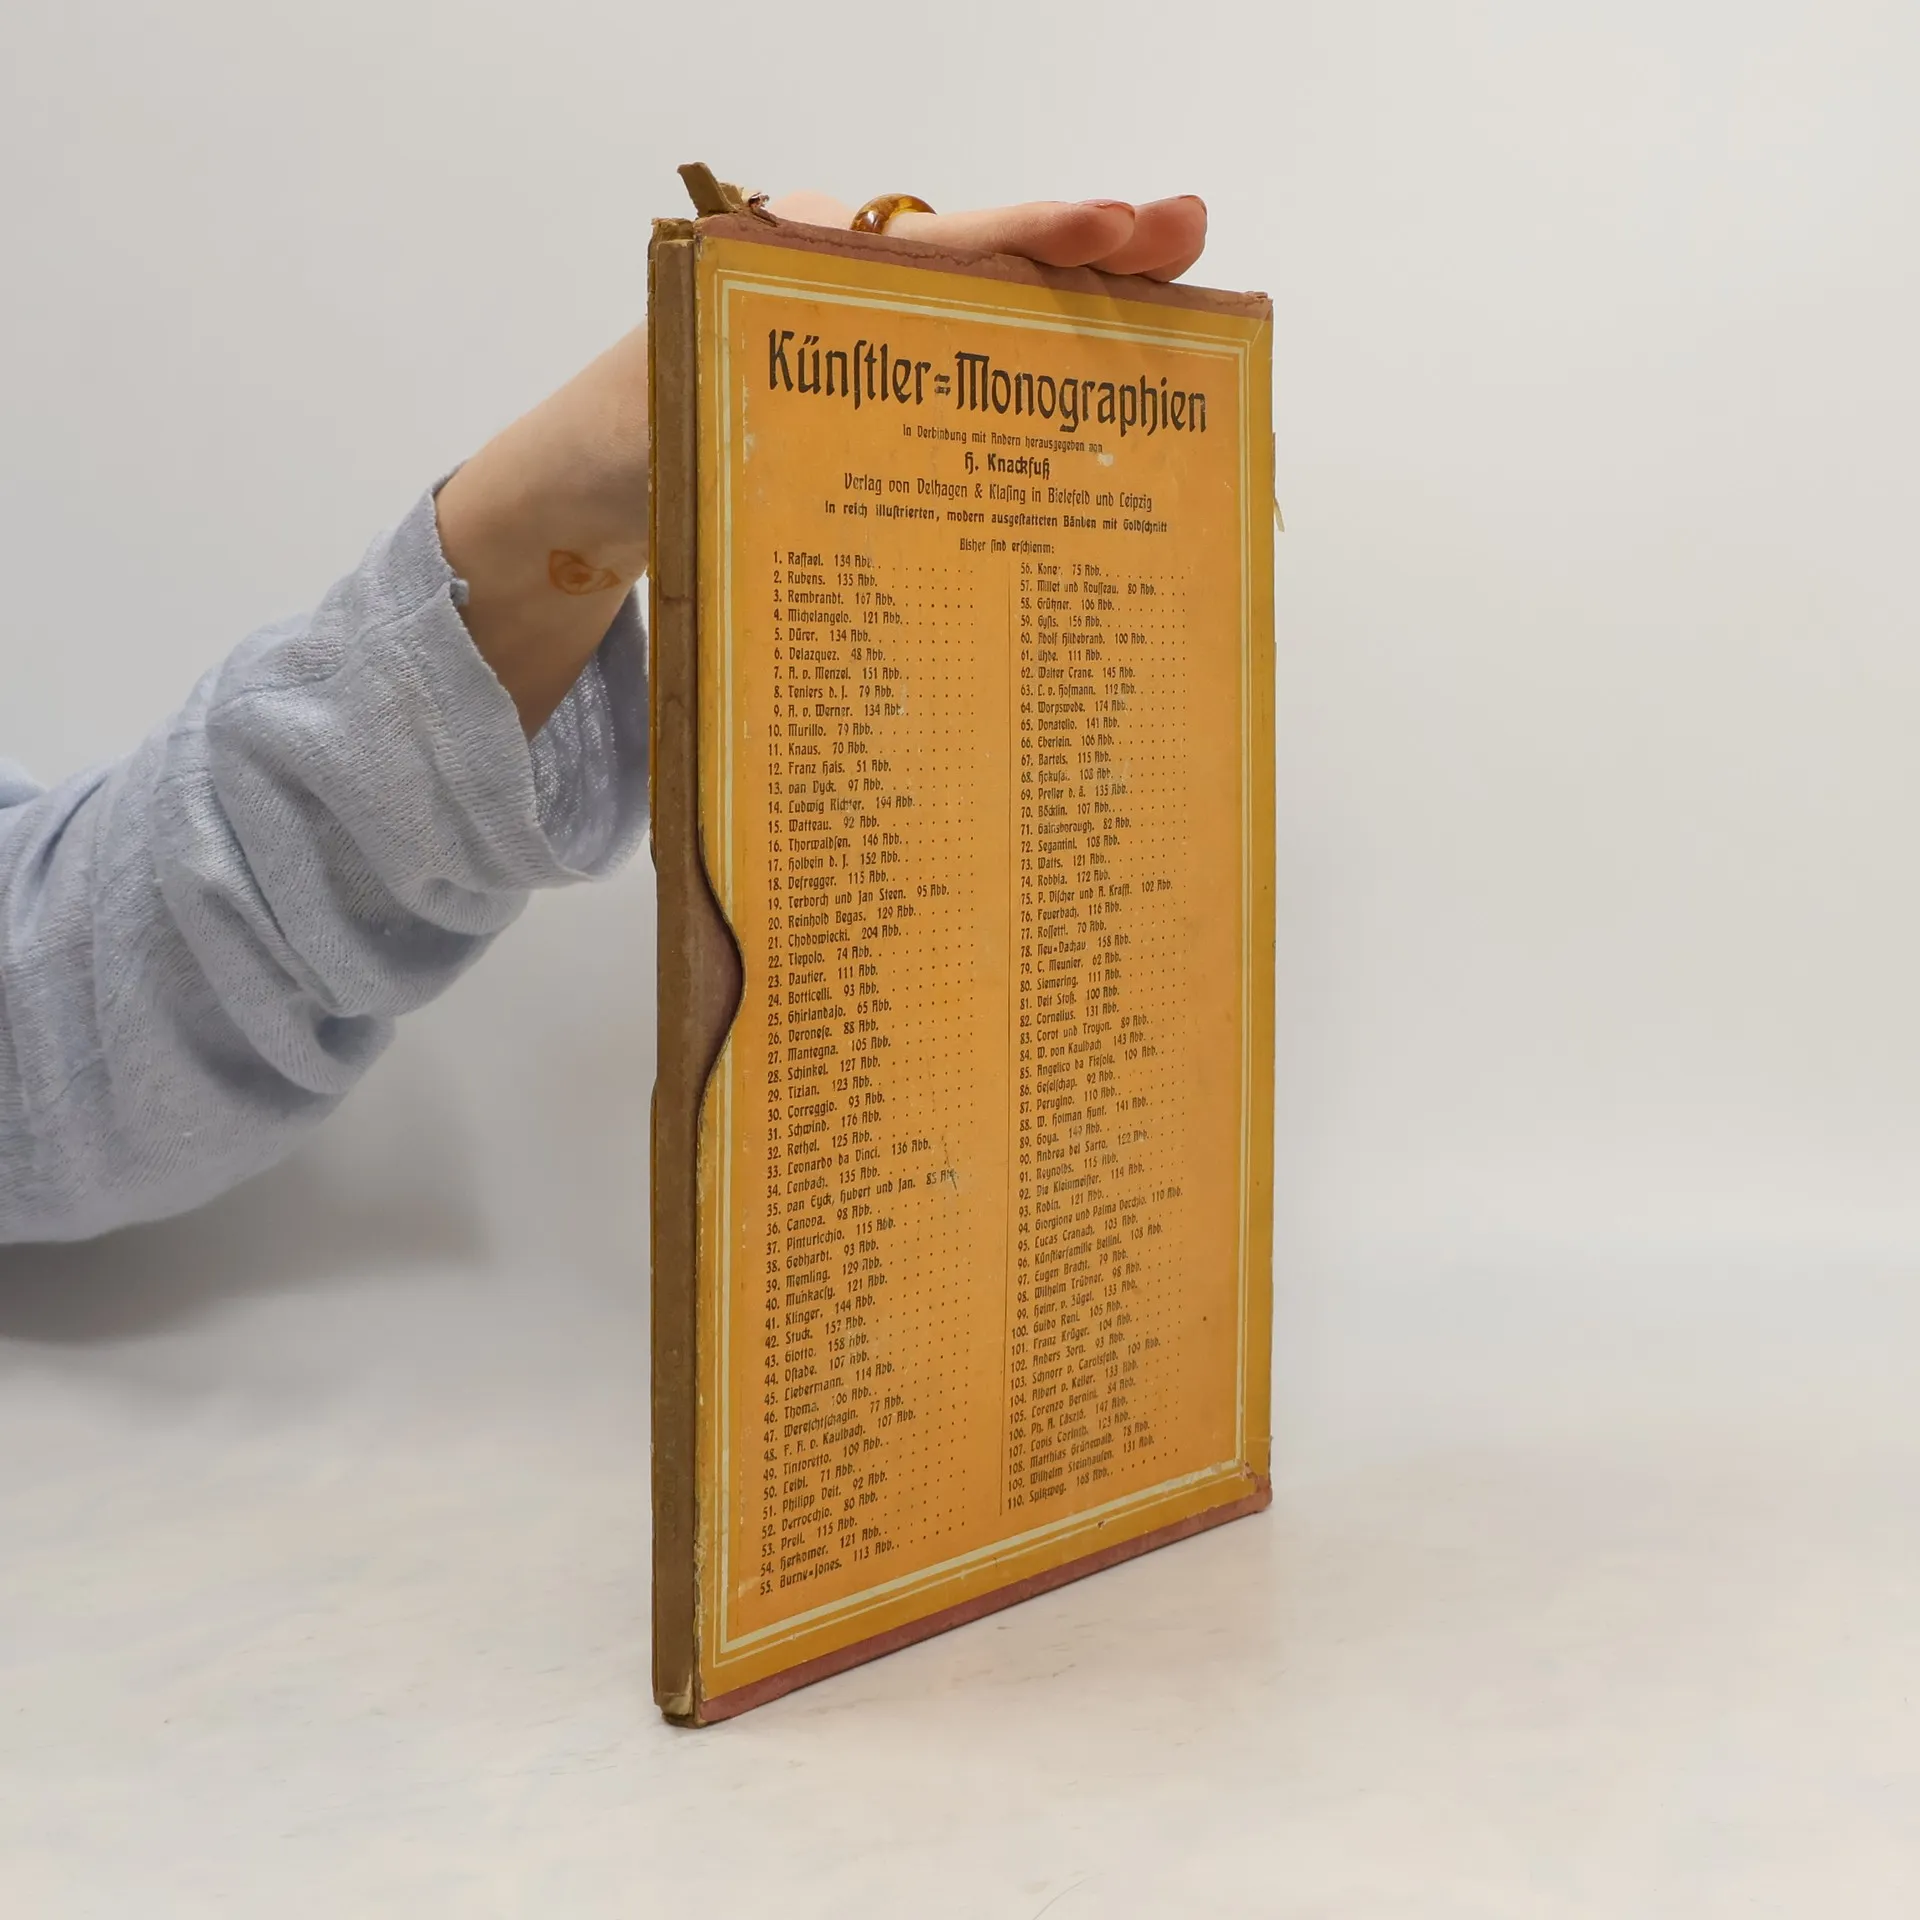 Künſtler=Monographien
In Verbindung mit Andern herausgegeben von
H. Knackfuß
Verlag von Velhagen & Klaſing in Bielefeld und Leipzig
In reich illuſtrierten, modern ausgeſtatteten Bänden mit Goldſchnitt
Bisher ſind erſchienen:
1. Raffael. 134 Abb.
2. Rubens. 135 Abb.
3. Rembrandt. 167 Abb.
4. Michelangelo. 121 Abb.
5. Dürer. 134 Abb.
6. Velazquez. 48 Abb.
7. A. v. Menzel. 151 Abb.
8. Teniers d. J. 79 Abb.
9. A. v. Werner. 134 Abb.
10. Murillo. 79 Abb.
11. Knaus. 70 Abb.
12. Franz Hals. 51 Abb.
13. van Dyck. 97 Abb.
14. Ludwig Richter. 194 Abb.
15. Watteau. 92 Abb.
16. Thorwaldſen. 146 Abb.
17. Holbein d. J. 152 Abb.
18. Defregger. 115 Abb.
19. Terborch und Jan Steen. 95 Abb.
20. Reinhold Begas. 129 Abb.
21. Chodowiecki. 204 Abb.
22. Tiepolo. 74 Abb.
23. Vautier. 111 Abb.
24. Botticelli. 93 Abb.
25. Ghirlandajo. 65 Abb.
26. Veroneſe. 88 Abb.
27. Mantegna. 105 Abb.
28. Schinkel. 127 Abb.
29. Tizian. 123 Abb.
30. Correggio. 93 Abb.
31. Schwind. 176 Abb.
32. Rethel. 125 Abb.
33. Leonardo da Vinci. 136 Abb.
34. Lenbach. 135 Abb.
35. van Eyck, Hubert und Jan. 85 Abb.
36. Canova. 98 Abb.
37. Pinturicchio. 115 Abb.
38. Gebhardt. 93 Abb.
39. Memling. 129 Abb.
40. Munkacſy. 121 Abb.
41. Klinger. 144 Abb.
42. Stuck. 157 Abb.
43. Giotto. 158 Abb.
44. Oſtade. 107 Abb.
45. Liebermann. 114 Abb.
46. Thoma. 106 Abb.
47. Wereſchtſchagin. 77 Abb.
48. F. A. v. Kaulbach. 107 Abb.
49. Tintoretto. 109 Abb.
50. Leibl. 71 Abb.
51. Philipp Veit. 92 Abb.
52. Verrocchio. 80 Abb.
53. Prell. 115 Abb.
54. Herkomer. 121 Abb.
55. Burne=Jones. 113 Abb.
56. Koner. 75 Abb.
57. Millet und Rouſſeau. 80 Abb.
58. Grützner. 106 Abb.
59. Gyſis. 156 Abb.
60. Adolf Hildebrand. 100 Abb.
61. Uhde. 111 Abb.
62. Walter Crane. 145 Abb.
63. L. v. Hofmann. 112 Abb.
64. Worpswede. 174 Abb.
65. Donatello. 141 Abb.
66. Eberlein. 106 Abb.
67. Bartels. 115 Abb.
68. Hokuſai. 108 Abb.
69. Preller d. ä. 135 Abb.
70. Böcklin. 107 Abb.
71. Gainsborough. 82 Abb.
72. Segantini. 108 Abb.
73. Watts. 121 Abb.
74. Robbia. 172 Abb.
75. P. Viſcher und A. Krafft. 102 Abb.
76. Feuerbach. 116 Abb.
77. Roſſetti. 70 Abb.
78. Neu=Dachau 158 Abb.
79. C. Meunier. 62 Abb.
80. Siemering. 111 Abb.
81. Veit Stoß. 100 Abb.
82. Cornelius. 131 Abb.
83. Corot und Troyon. 89 Abb.
84. W. von Kaulbach 143 Abb.
85. Angelico da Fieſole. 109 Abb.
86. Geſelſchap. 92 Abb.
87. Perugino. 110 Abb.
88. W. Holman Hunt. 141 Abb.
89. Goya. 149 Abb.
90. Andrea del Sarto. 122 Abb.
91. Reynolds. 115 Abb.
92. Die Kleinmeiſter. 114 Abb.
93. Rodin. 121 Abb.
94. Giorgione und Palma Vecchio. 110 Abb.
95. Lucas Cranach. 103 Abb.
96. Künſtlerfamilie Bellini. 108 Abb.
97. Eugen Bracht. 79 Abb.
98. Wilhelm Trübner. 98 Abb.
99. Heinr. v. Zügel. 133 Abb.
100. Guido Reni. 105 Abb.
101. Franz Krüger. 104 Abb.
102. Anders Zorn. 93 Abb.
103. Schnorr v. Carolsfeld. 109 Abb.
104. Albert v. Keller. 133 Abb.
105. Lorenzo Bernini. 84 Abb.
106. Ph. A. László. 147 Abb.
107. Lovis Corinth. 123 Abb.
108. Matthias Grünewald. 78 Abb.
109. Wilhelm Steinhauſen. 131 Abb.
110. Spitzweg. 168 Abb.